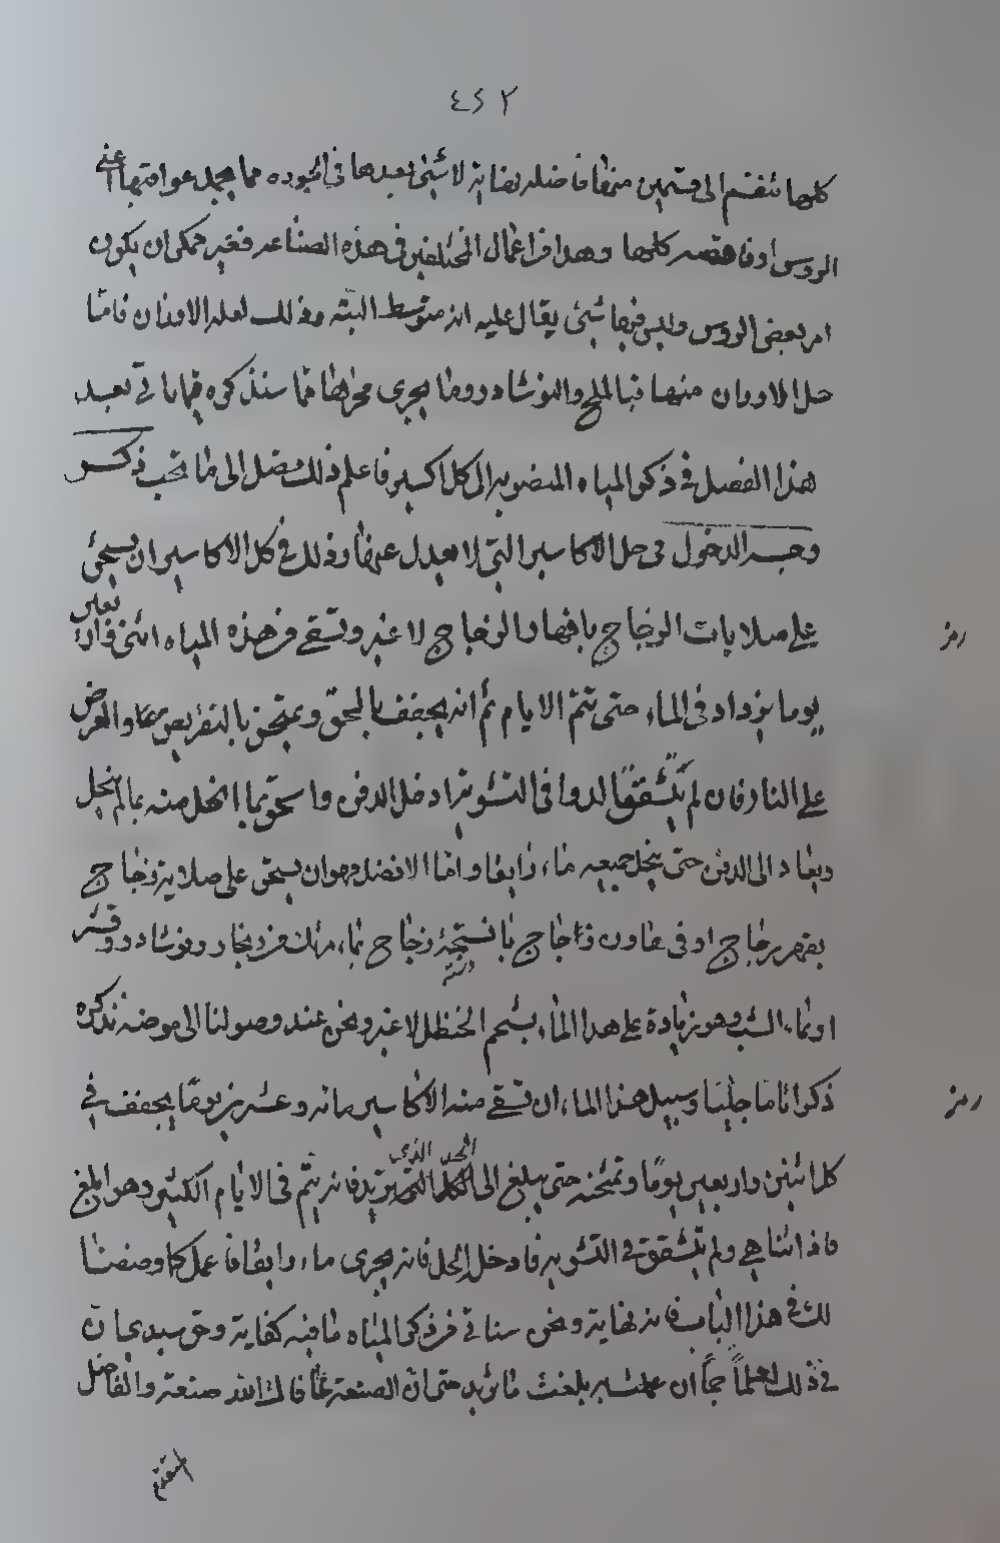 ٤٤٢
كلها تنقسم الى قسمين منها فاضله نهاية لا شئ بعدها فى الجوده مما يحمد عواقبها اعنى
الروس او ناقصه كلها وهذا من اعمال المختلفين فى هذه الصناعه فغير ممكن ان يكون
امر بعض الروس وليس فيها شئ يقال عليه انه متوسط البته وذلك لعله الاوزان فامّا
حل الاوزان منها فبالملح والنوشادر وما يجرى مجراها مما سنذكره فيما ياتى بعد
هذا الفصل فى ذكر المياه المنصوبه الى كل اكسير فاعلم ذلك وصل الى ما يجب ذكـر
وجـه الدخول فى حل الاكاسير التى لا معدل عنها وذلك فى كل الاكاسير ان يسحق
على صلايات الزجاج بافهار الزجاج لا غير وتسقى من هذه المياه اثنى واربعين
رمز
يوما يزداد فى الماء حتى تتم الايام ثم انه يجفف بالسحق ويمتحن بالتفريص والعرض
على النار فان لم يتشقق الدوا فى التشويه ادخل الدفن واسحق ما انحل منه بما لم ينحل
ويعاد الى الدفن حتى ينحل جميعه ماء رايقا واما الافضل وهو ان يسحق على صلايه زجاج
بفهر زجاج او فى هاون زجاج بدستجة زجاج بماء مركب من زنجار ونوشادر وقشر
دستج
او بماء الشب وهو زيادة على هذا الماء بشحم الحنظل لا غير ونحن عند وصولنا الى موضعه نذكره
ذكرا تاما جليا وسبيل هذا الماء ان تسقى منه الاكاسير مائه وعشرين يوما يجفف فى
رمز
كل اثنين واربعين يوما وتمتحنه حتى يبلغ الى الحد الذى تريد فانه يتم فى الايام الكثير وهو ابلغ
فاذا تناهى ولم يتشقق فى التشويه فادخله الحل فانه يجرى ماء رايقا فاعمل كما وصفنا
لك فى هذا الباب فانه نهاية ونحن سناتى من ذكر المياه ما فيه كفاية وحق سيدى ان
فى ذلك لعلماً جماً ان عملت به بلغت ما تريد حتى ان الصنعة صنعة والفاضل